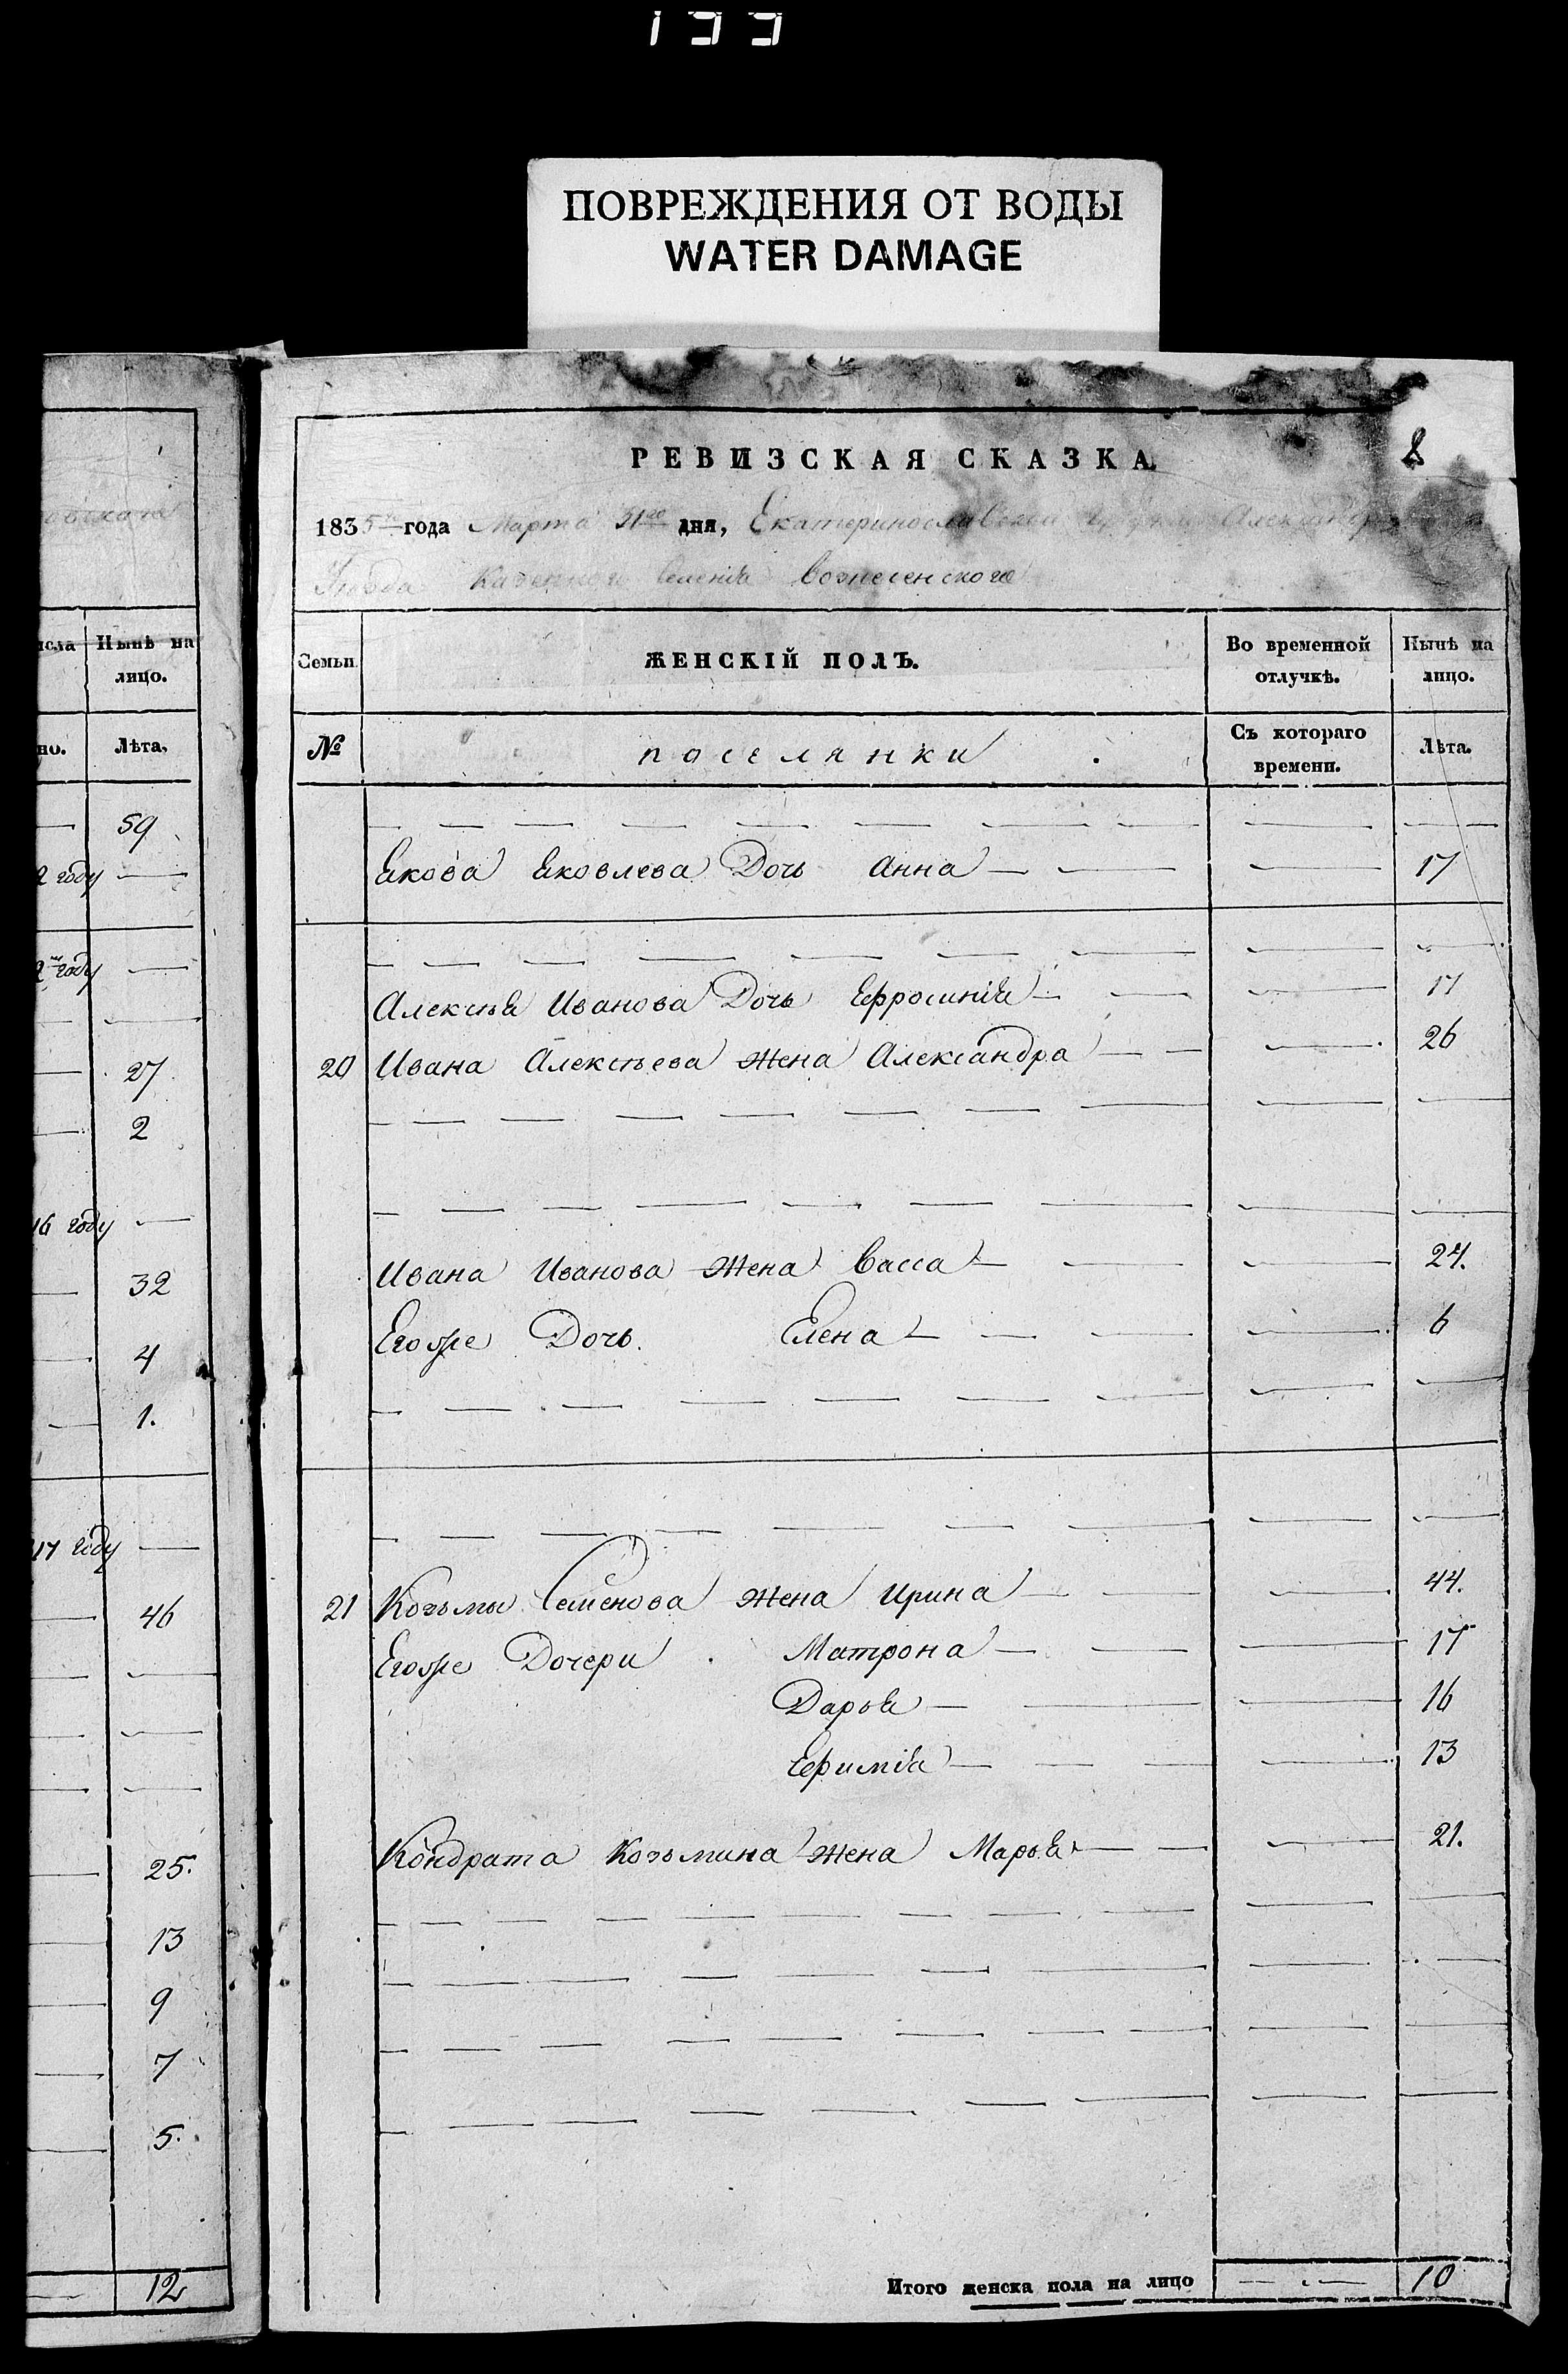 133
ПОВРЕЖДЕНИЯ ОТ ВОДЫ
WATER DAMAGE
8
РЕВИЗСКАЯ СКАЗКА
1835го года Марта 31го дня, Екатеринославской
Уезда Казенного Селения Вознесенского
Нынѣ на лицо.
Лѣта,
59
2 году —
2м году —
27
2
16 году —
32
4
1.
17 году —
46
25.
13
9
7
5.
12
Семьи ЖЕНСКІЙ ПОЛЪ. Во временной отлучкѣ. Нынѣ на лицо.
№ поселянки Съ котораго времени. Лѣта.
Якова Яковлева Дочь Анна — — — 17
Алексѣя Иванова Дочь Ефросинія — — — 17
20 Ивана Алексѣева Жена Александра — — — 26
Ивана Иванова Жена Васса — — — 24.
Егоже Дочь Елена — — — — 6
21 Козьмы Семенова Жена Ирина — — — 44.
Егоже Дочери Матрона — — — 17
Дарья — — — 16
Ефимія — — — — 13
Кондрата Козьмина Жена Марья — — — 21.
Итого женска пола на лицо — — — 10